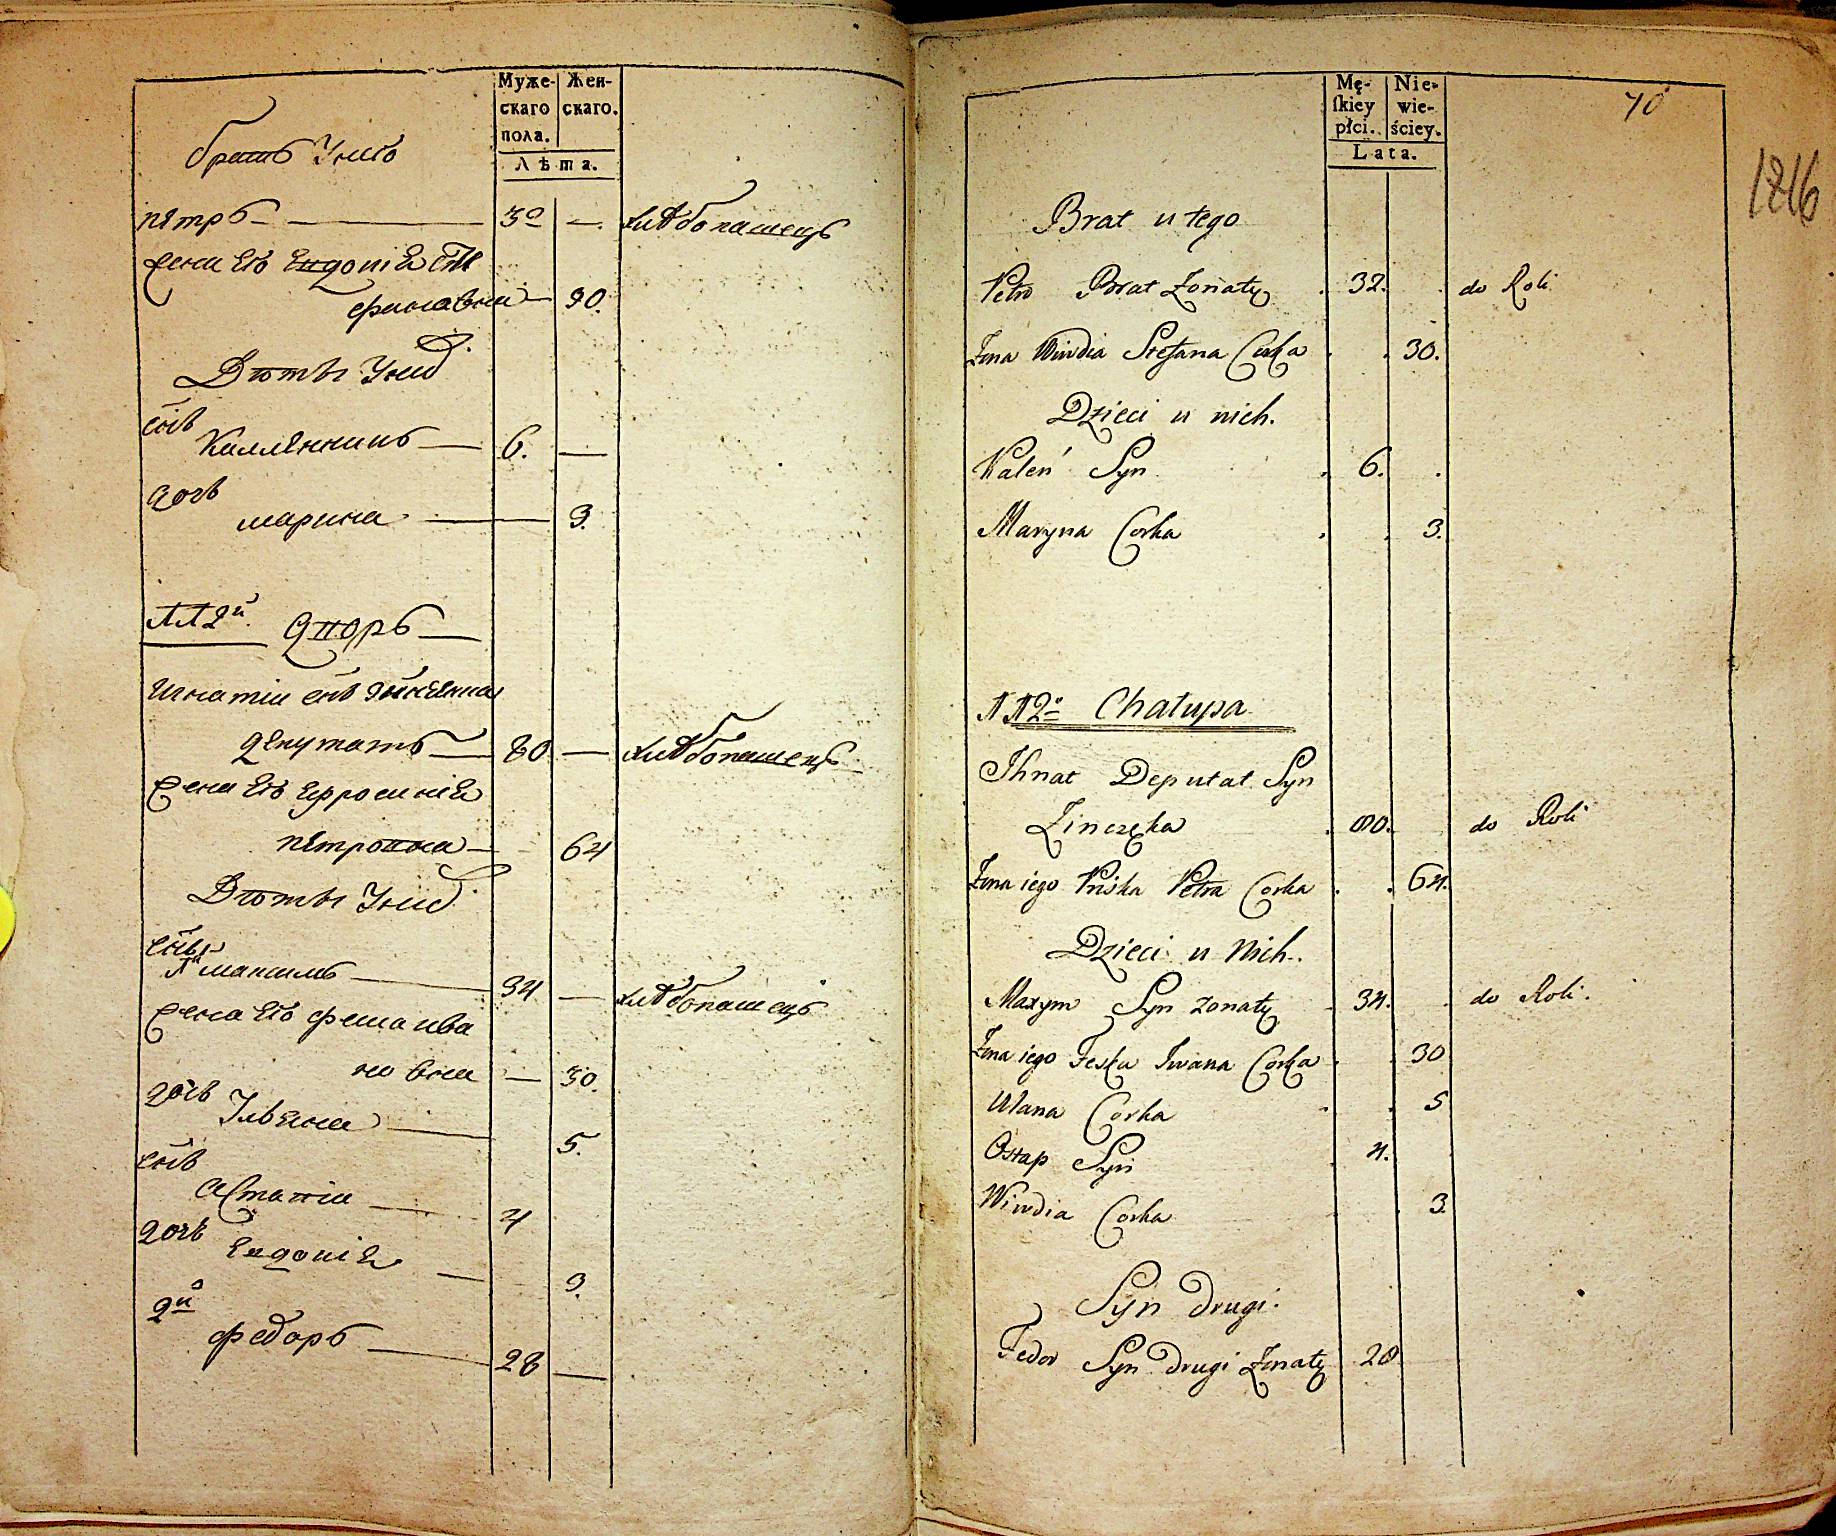 Муже-
скаго
пола.
Жен-
скаго.
Лѣта.
братъ У него
петръ 32 хлѣбопашецъ
жена Его Евдокіѧ Сте
фановна 30.
Дѣти У ний
снъ
Каленникъ 6.
дочь
марина 3.
№ 2й. Дворъ
Игнатіи снъ зѣнченка
депутатъ 80 хлѣбопашецъ
жена Его ефросиніѧ
петровна 64
Дѣти У ний
снъ
1й максимъ 34 хлѣбопашецъ
жена Его феска ива
новна 30.
дочь
Ульѧна 5.
снъ
астапіи 4
дочь
Евдокіѧ 3.
2й
федоръ 28
Mę-
skiey
płci.
Nie-
wie-
ściey.
Lata.
70
1216
Brat u tego
Petro Brat Żonaty 32. do Roli
Żona Wiwdia Stefana Corka 30.
Dzieci u nich.
Kaleń Syn 6.
Maryna Corka 3.
№ 2o Chałupa
Ihnat Deputat Syn
Zinczęka 80. do Roli
Żona iego Priska Petra Corka 64.
Dzieci u Nich.
Maxym Syn żonaty 34. do Roli.
Żona iego Feska Iwana Corka 30
Ulana Corka 5
Ostap Syn 4.
Wiwdia Corka 3.
Syn drugi.
Fedor Syn drugi Żonaty 28